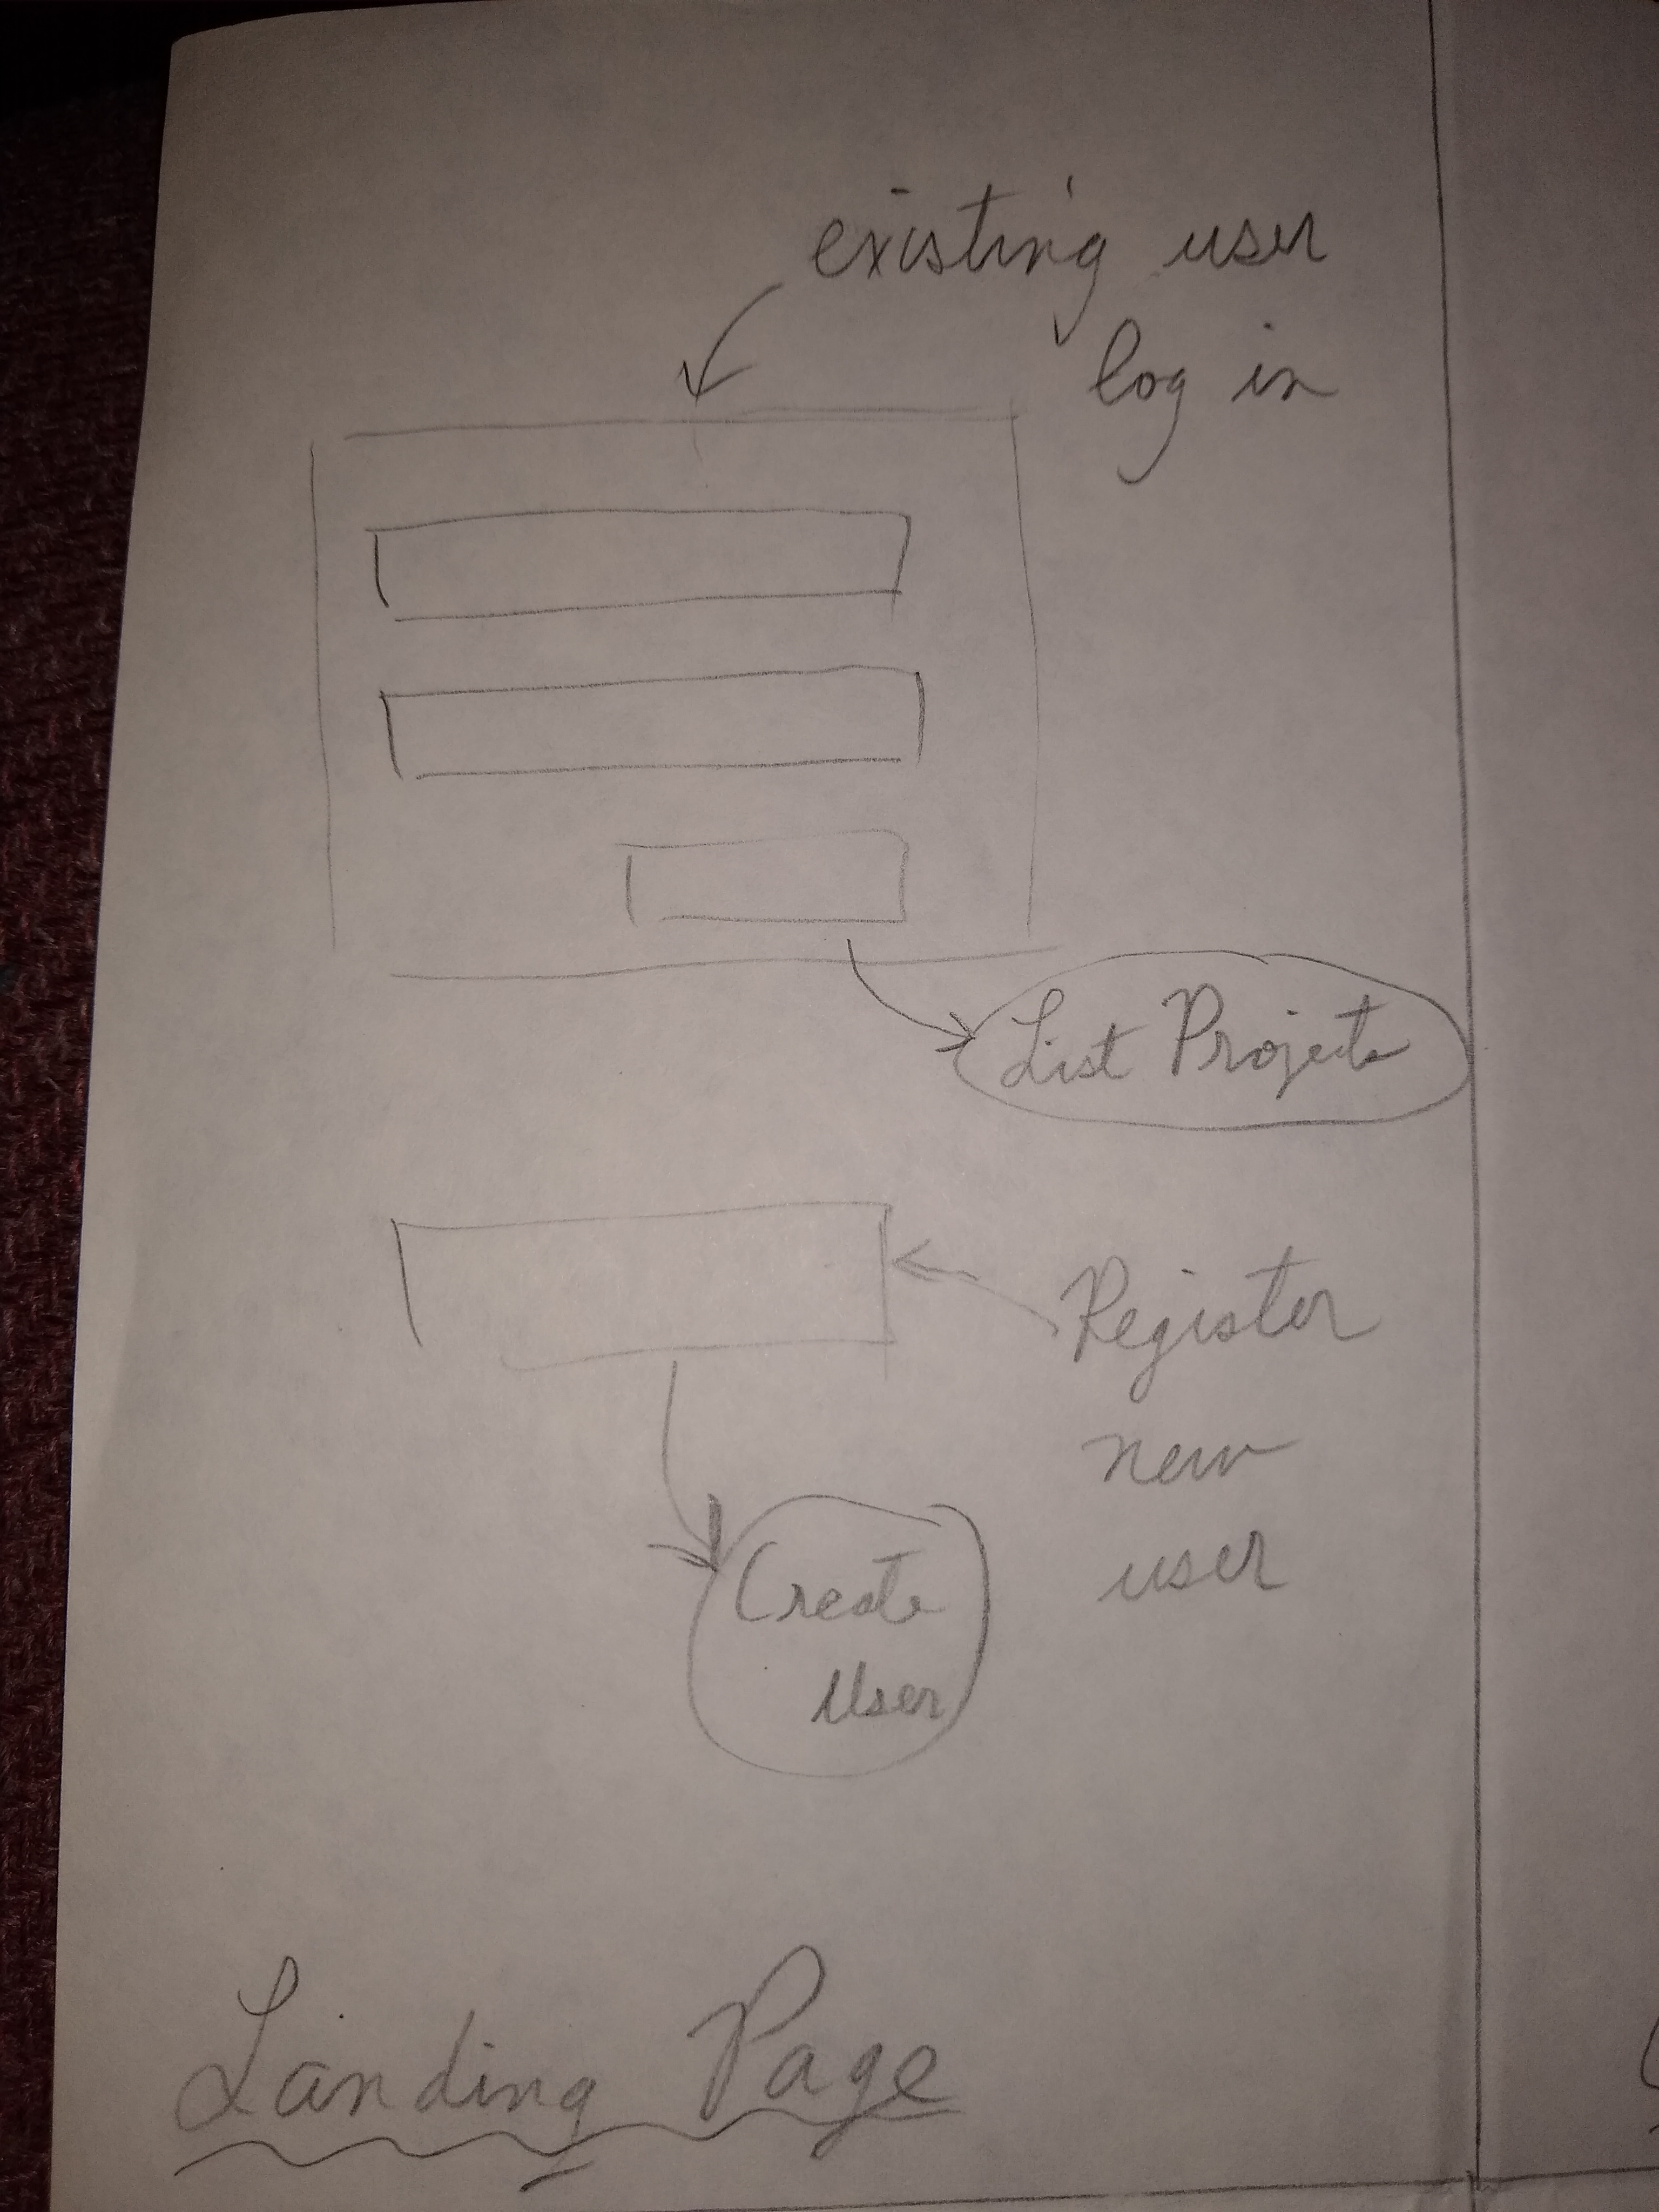 existing user
log in
List Projects
Register
new
user
Create
User
Landing Page